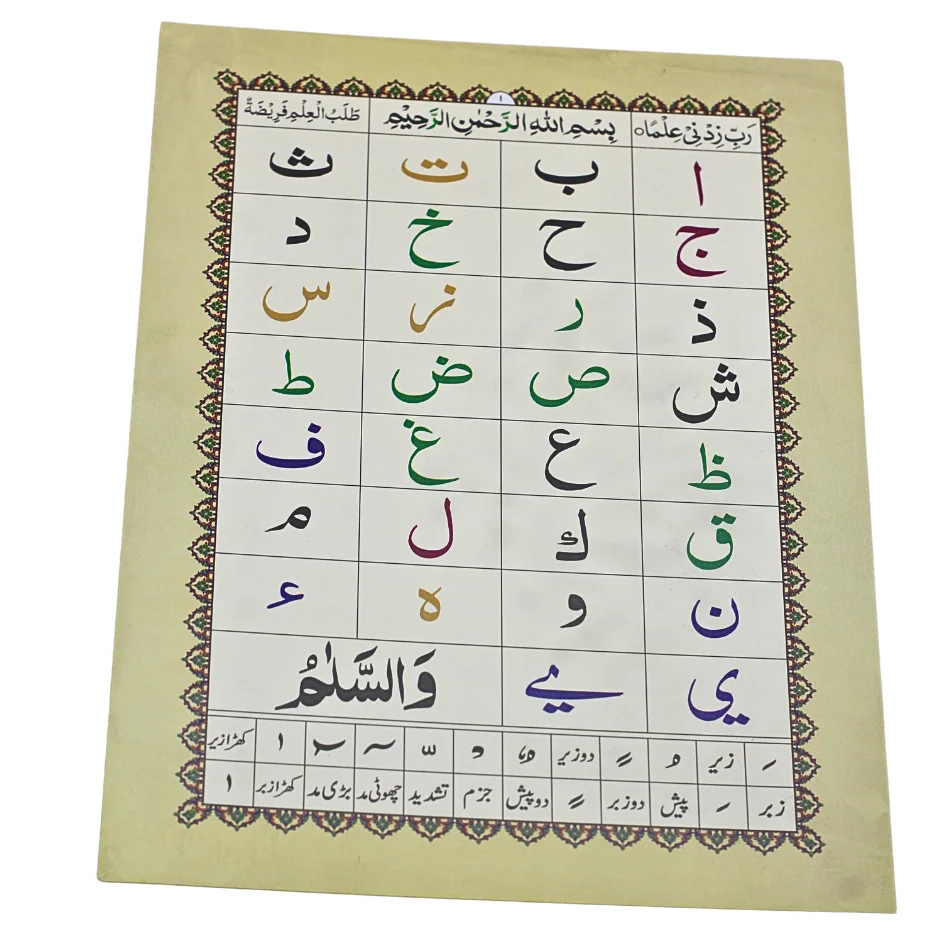 ۱
رَبِّ زِدْنِيْ عِلْمًا٥ بِسْمِ اللهِ الرَّحْمٰنِ الرَّحِيْمِ طَلَبُ الْعِلْمِ فَرِيْضَةٌ
ا ب ت ث
ج ح خ د
ذ ر ز س
ش ص ض ط
ظ ع غ ف
ق ك ل م
ن و ہ ء
ي ے وَالسَّلٰمُ
زیر دو زیر کھڑا زیر
زبر پیش دو زبر دو پیش جزم تشدید چھوٹی مد بڑی مد کھڑا زبر